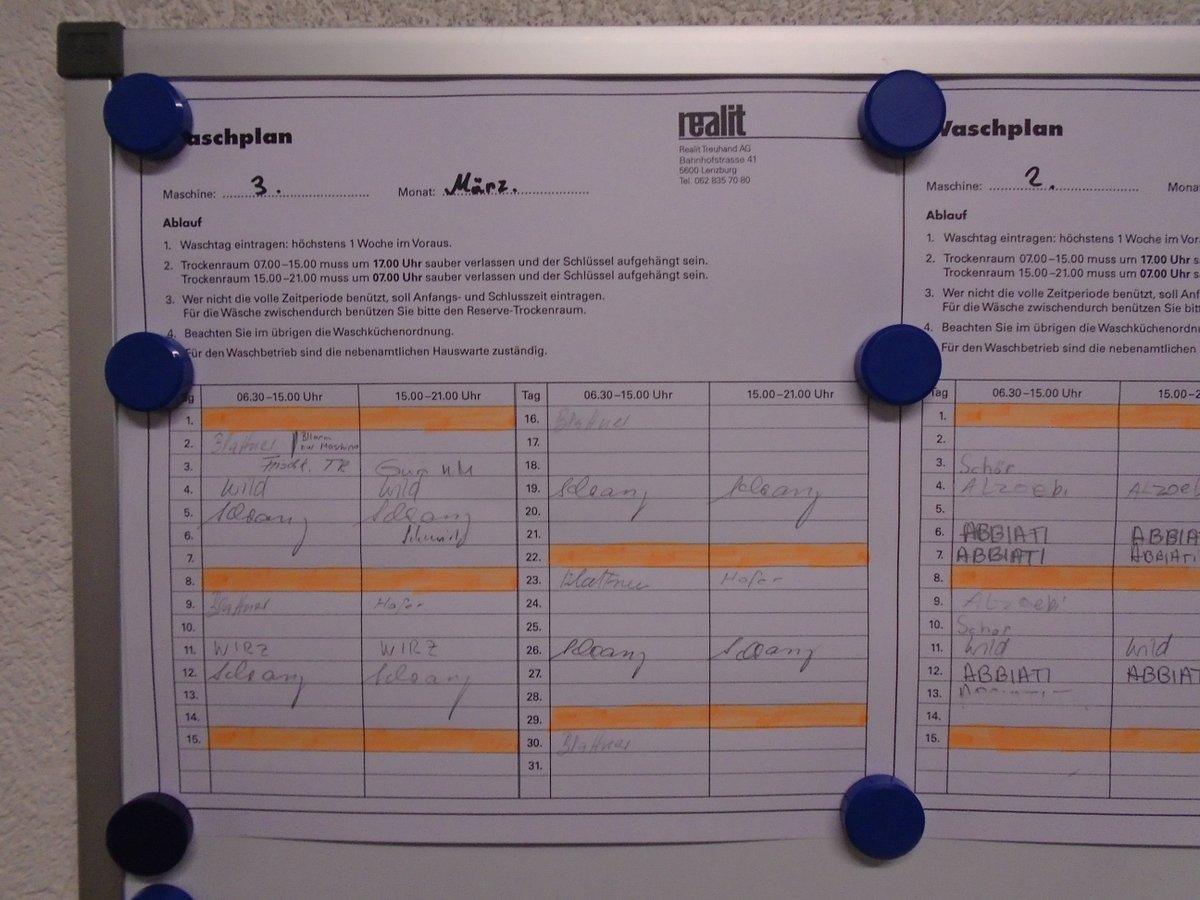 aschplan
realit
Realit Treuhand AG
Bahnhofstrasse 41
5600 Lenzburg
Tel. 062 835 70 80
Maschine: 3. Monat: März.
Ablauf
1. Waschtag eintragen: höchstens 1 Woche im Voraus.
2. Trockenraum 07.00–15.00 muss um 17.00 Uhr sauber verlassen und der Schlüssel aufgehängt sein.
Trockenraum 15.00–21.00 muss um 07.00 Uhr sauber verlassen und der Schlüssel aufgehängt sein.
3. Wer nicht die volle Zeitperiode benützt, soll Anfangs- und Schlusszeit eintragen.
Für die Wäsche zwischendurch benützen Sie bitte den Reserve-Trockenraum.
4. Beachten Sie im übrigen die Waschküchenordnung.
Für den Waschbetrieb sind die nebenamtlichen Hauswarte zuständig.
06.30–15.00 Uhr 15.00–21.00 Uhr Tag 06.30–15.00 Uhr 15.00–21.00 Uhr
1. 16. Blattner
2. Blattner nur Maschine 17.
3. TR 18.
4. Wild Wild 19.
5. 20.
6. Schmid 21.
7. 22.
8. 23. Blattner Hofer
9. Blattner Hofer 24.
10. 25.
11. WIRZ WIRZ 26.
12. 27.
13. 28.
14. 29.
15. 30. Blattner
31.
Waschplan
Maschine: 2. Mona
Ablauf
1. Waschtag eintragen: höchstens 1 Woche im Vor
2. Trockenraum 07.00–15.00 muss um 17.00 Uhr s
Trockenraum 15.00–21.00 muss um 07.00 Uhr s
3. Wer nicht die volle Zeitperiode benützt, soll Anf
Für die Wäsche zwischendurch benützen Sie bitt
4. Beachten Sie im übrigen die Waschküchenordnu
Für den Waschbetrieb sind die nebenamtlichen
Tag 06.30–15.00 Uhr 15.00–2
1.
2.
3. Schär
4. ALzoebi ALzoeb
5.
6. ABBIATI ABBIA
7. ABBIATI ABBIATI
8.
9. ALzoebi
10. Schär
11. Wild Wild
12. ABBIATI ABBIAT
13.
14.
15.